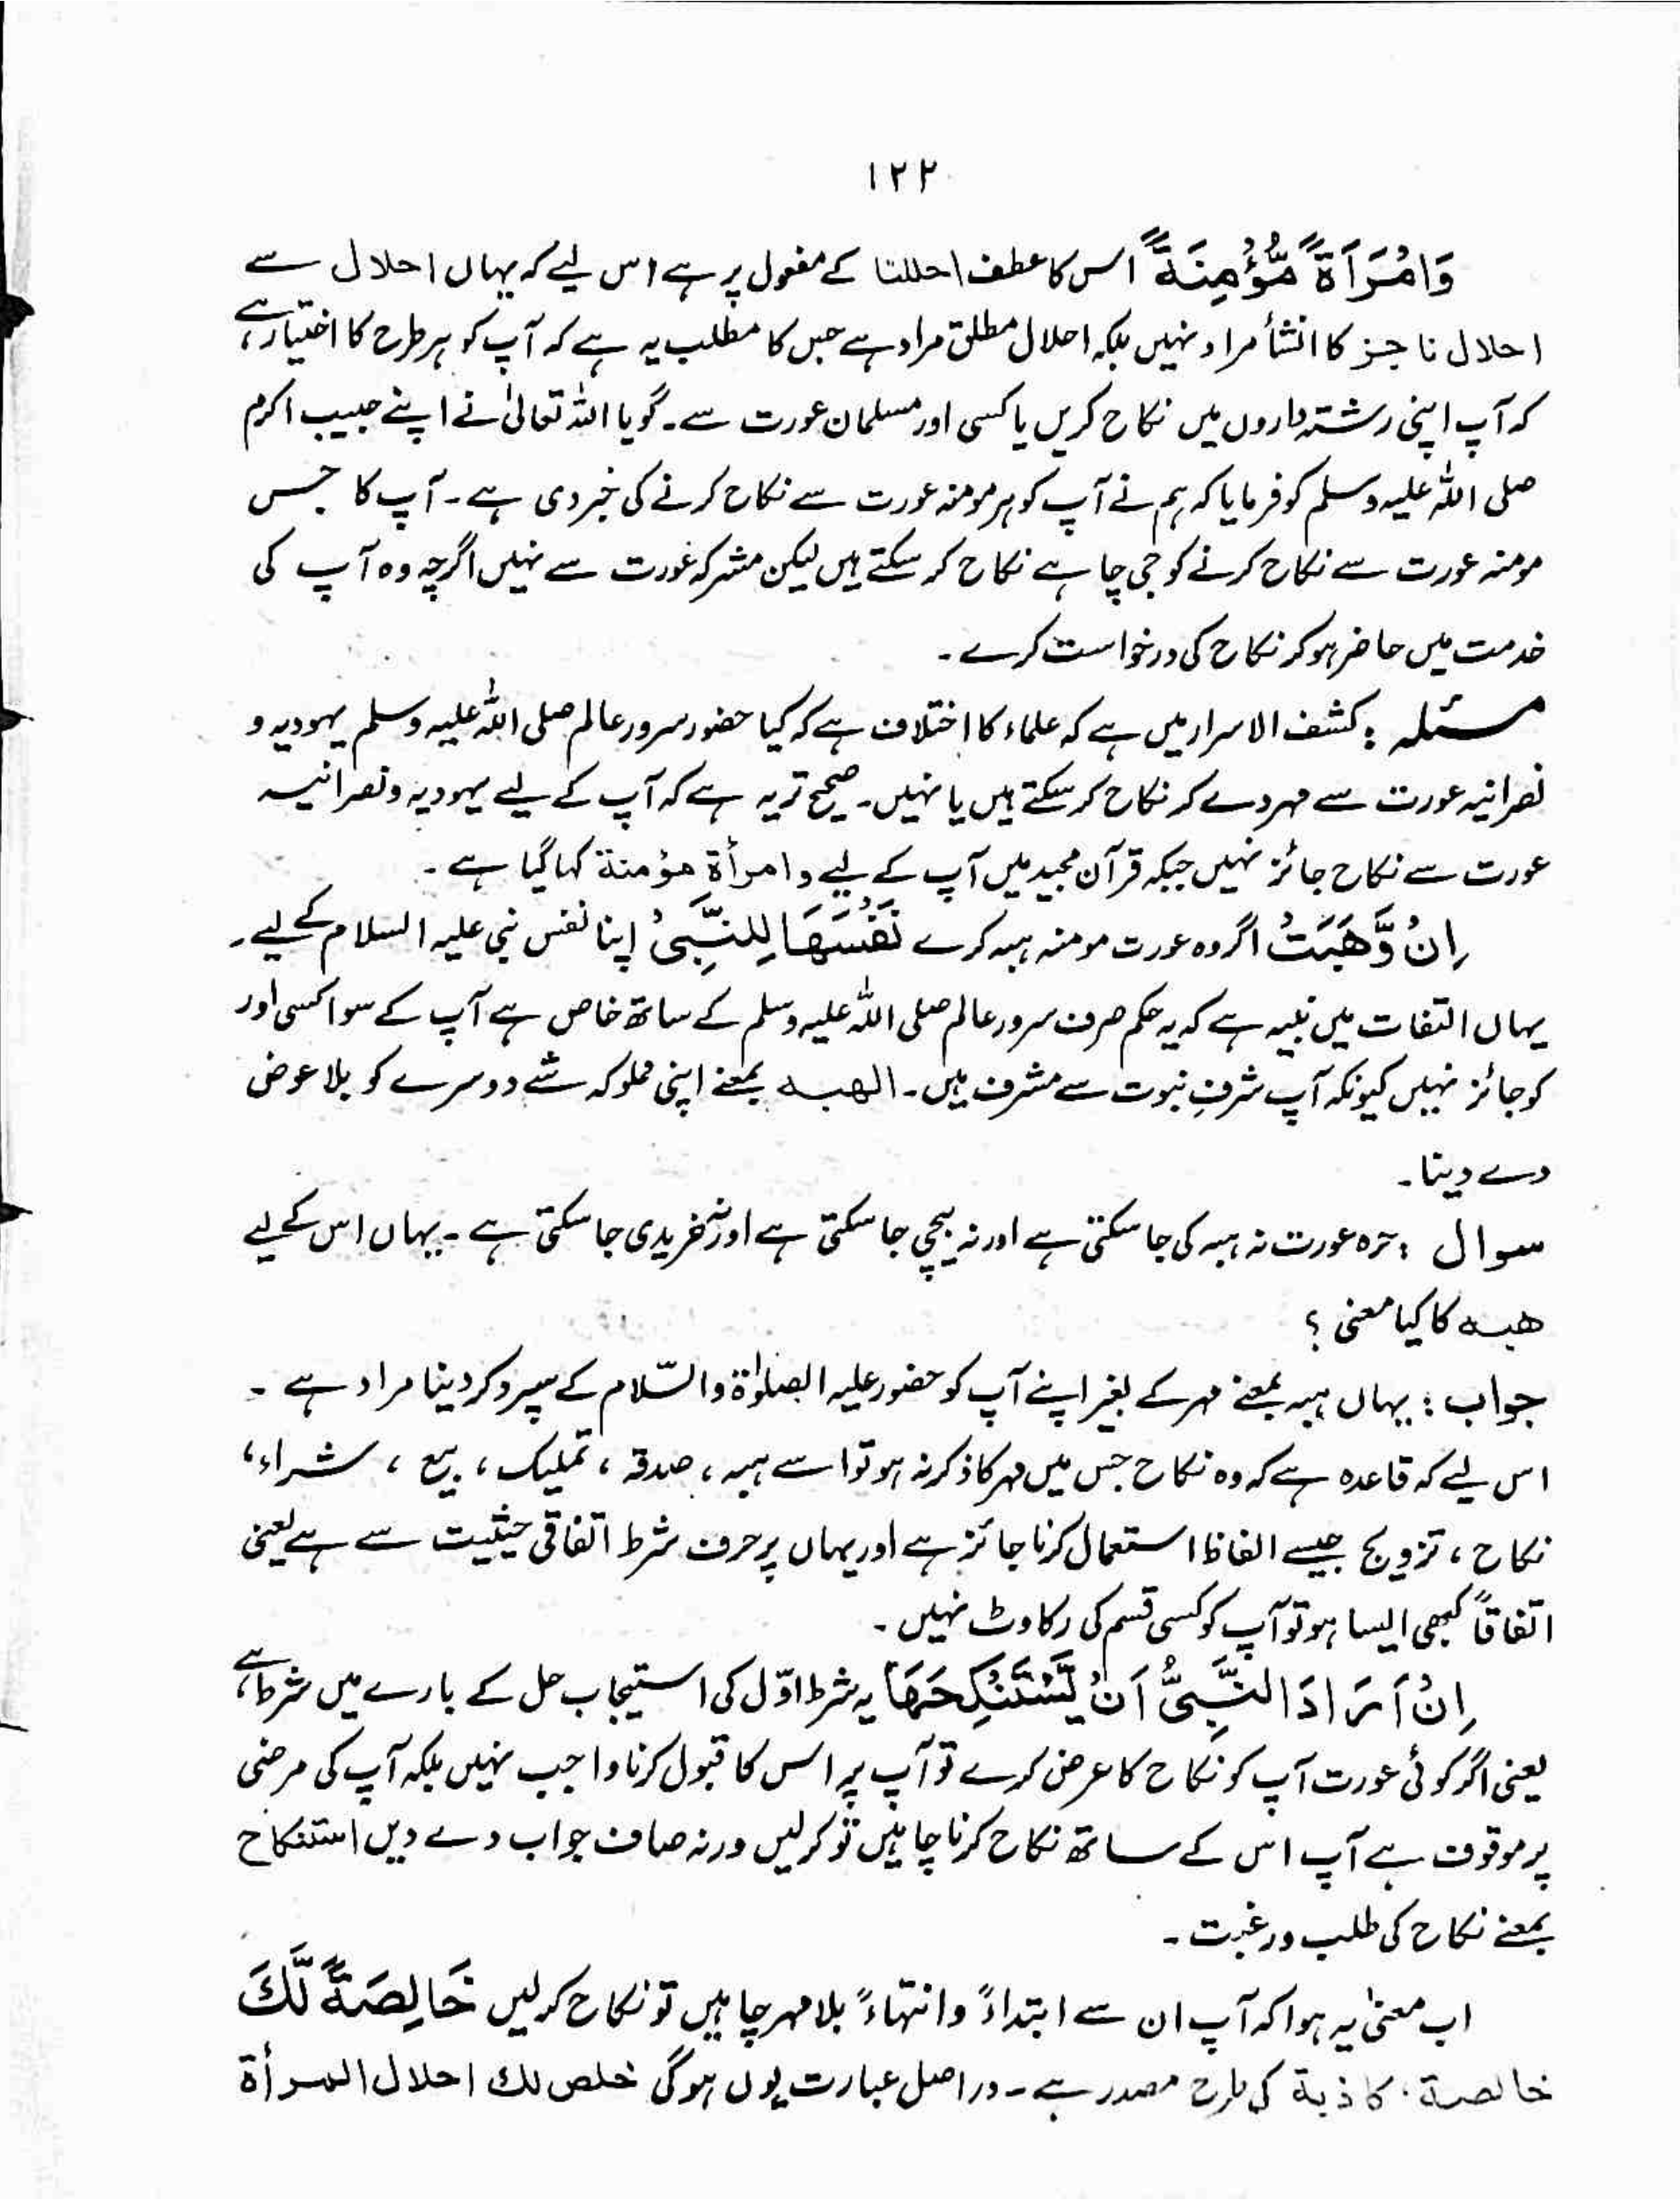 ۱۲۲
وَامْرَاَةً مُّؤْمِنَةً اس کا عطف احللنا کے مفعول پر ہے اس لیے کہ یہاں احلال سے
احلال ناجز کا انشأ مراد نہیں بلکہ احلال مطلق مراد ہے جس کا مطلب یہ ہے کہ آپ کو ہر طرح کا اختیار ہے،
کہ آپ اپنی رشتہ داروں میں نکاح کریں یا کسی اور مسلمان عورت سے۔ گویا اللہ تعالیٰ نے اپنے حبیب اکرم
صلی اللہ علیہ وسلم کو فرمایا کہ ہم نے آپ کو ہر مومنہ عورت سے نکاح کرنے کی خبر دی ہے۔ آپ کا جس
مومنہ عورت سے نکاح کرنے کو جی چاہے نکاح کر سکتے ہیں لیکن مشرکہ عورت سے نہیں اگرچہ وہ آپ کی
خدمت میں حاضر ہو کر نکاح کی درخواست کرے۔
مسئلہ : کشف الاسرار میں ہے کہ علماء کا اختلاف ہے کہ کیا حضور سرور عالم صلی اللہ علیہ وسلم یہودیہ و
نصرانیہ عورت سے مہر دے کر نکاح کر سکتے ہیں یا نہیں۔ صحیح تر یہ ہے کہ آپ کے لیے یہودیہ و نصرانیہ
عورت سے نکاح جائز نہیں جبکہ قرآن مجید میں آپ کے لیے وامرأة مؤمنة کہا گیا ہے۔
اِنْ وَّهَبَتْ اگر وہ عورت مومنہ ہبہ کرے نَفْسَهَا لِلنَّبِیِّ اپنا نفس نبی علیہ السلام کے لیے۔
یہاں التفات میں تنبیہ ہے کہ یہ حکم صرف سرور عالم صلی اللہ علیہ وسلم کے ساتھ خاص ہے آپ کے سوا کسی اور
کو جائز نہیں کیونکہ آپ شرفِ نبوت سے مشرف ہیں۔ الھبہ بمعنے اپنی مملوکہ شے دوسرے کو بلا عوض
دے دینا۔
سوال : حرہ عورت نہ ہبہ کی جا سکتی ہے اور نہ بیچی جا سکتی ہے اور نہ خریدی جا سکتی ہے۔ یہاں اس کے لیے
ھبہ کا کیا معنی ؟
جواب : یہاں ہبہ بمعنے مہر کے بغیر اپنے آپ کو حضور علیہ الصلوٰۃ والسّلام کے سپرد کر دینا مراد ہے۔
اس لیے کہ قاعدہ ہے کہ وہ نکاح جس میں مہر کا ذکر نہ ہو تو اسے ہبہ ، صدقہ ، تملیک ، بیع ، شراء ،
نکاح ، تزویج جیسے الفاظ استعمال کرنا جائز ہے اور یہاں پر حرف شرط اتفاقی حیثیت سے ہے یعنی
اتفاقاً کبھی ایسا ہو تو آپ کو کسی قسم کی رکاوٹ نہیں۔
اِنْ اَرَادَ النَّبِیُّ اَنْ یَّسْتَنْکِحَهَا یہ شرط اوّل کی استیجاب حل کے بارے میں شرط ہے،
یعنی اگر کوئی عورت آپ کو نکاح کا عرض کرے تو آپ پر اس کا قبول کرنا واجب نہیں بلکہ آپ کی مرضی
پر موقوف ہے آپ اس کے ساتھ نکاح کرنا چاہیں تو کر لیں ورنہ صاف جواب دے دیں استنکاح
بمعنے نکاح کی طلب و رغبت۔
اب معنیٰ یہ ہوا کہ آپ ان سے ابتداءً و انتہاءً بلا مہر چاہیں تو نکاح کر لیں خَالِصَةً لَّكَ
خالصة ، كاذبة کی طرح مصدر ہے۔ دراصل عبارت یوں ہو گی خلص لك احلال المرأة